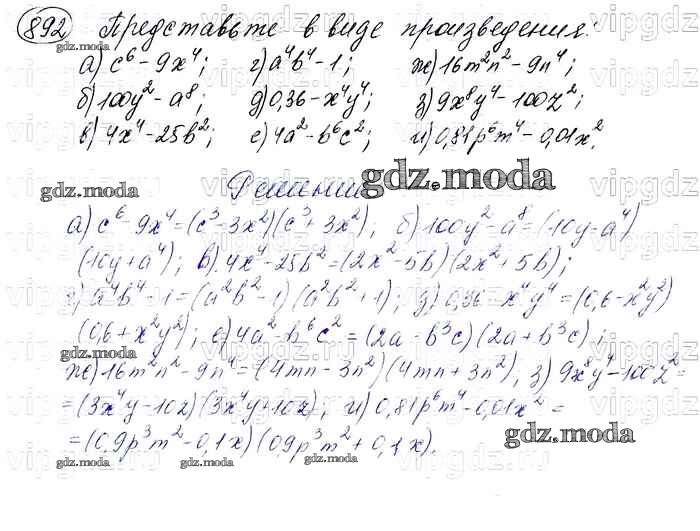 892 Представьте в виде произведения:
а) c⁶ - 9x⁴; г) a⁴b⁴ - 1; ж) 16m²n² - 9n⁴;
б) 100y² - a⁸; д) 0,36 - x⁴y⁴; з) 9x⁸y⁴ - 100z²;
в) 4x⁴ - 25b²; е) 4a² - b⁶c²; и) 0,81p⁶m⁴ - 0,01x².
gdz.moda
gdz.moda Решение
а) c⁶ - 9x⁴ = (c³ - 3x²)(c³ + 3x²); б) 100y² - a⁸ = (10y - a⁴)
(10y + a⁴); в) 4x⁴ - 25b² = (2x² - 5b)(2x² + 5b);
г) a⁴b⁴ - 1 = (a²b² - 1)(a²b² + 1); д) 0,36 - x⁴y⁴ = (0,6 - x²y²)
(0,6 + x²y²); е) 4a² - b⁶c² = (2a - b³c)(2a + b³c);
gdz.moda
ж) 16m²n² - 9n⁴ = (4mn - 3n²)(4mn + 3n²); з) 9x⁸y⁴ - 100z² =
= (3x⁴y - 10z)(3x⁴y + 10z); и) 0,81p⁶m⁴ - 0,01x² =
= (0,9p³m² - 0,1x)(0,9p³m² + 0,1x).
gdz.moda
gdz.moda gdz.moda gdz.moda
vipgdz